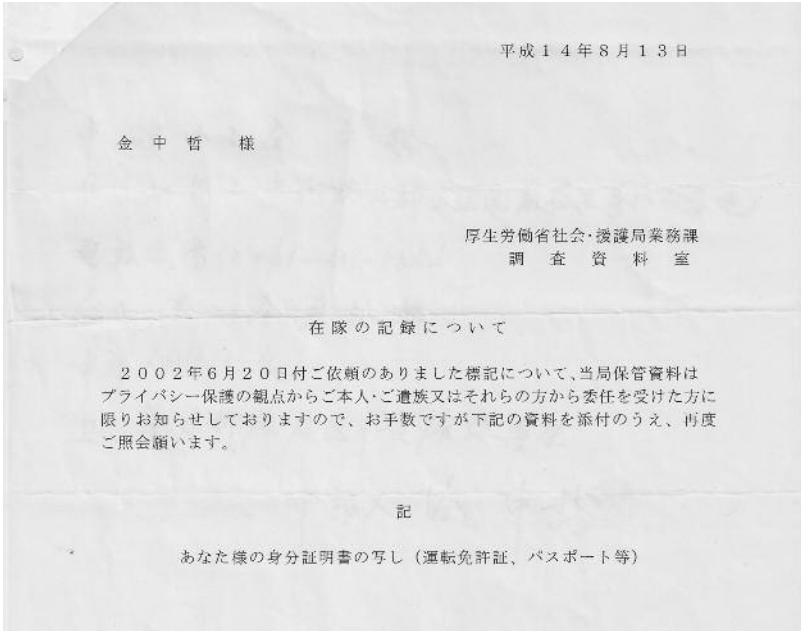 平成14年8月13日
金中哲 様
厚生労働省社会・援護局業務課
調査資料室
在隊の記録について
2002年6月20日付ご依頼のありました標記について、当局保管資料は
プライバシー保護の観点からご本人・ご遺族又はそれらの方から委任を受けた方に
限りお知らせしておりますので、お手数ですが下記の資料を添付のうえ、再度
ご照会願います。
記
あなた様の身分証明書の写し（運転免許証、パスポート等）